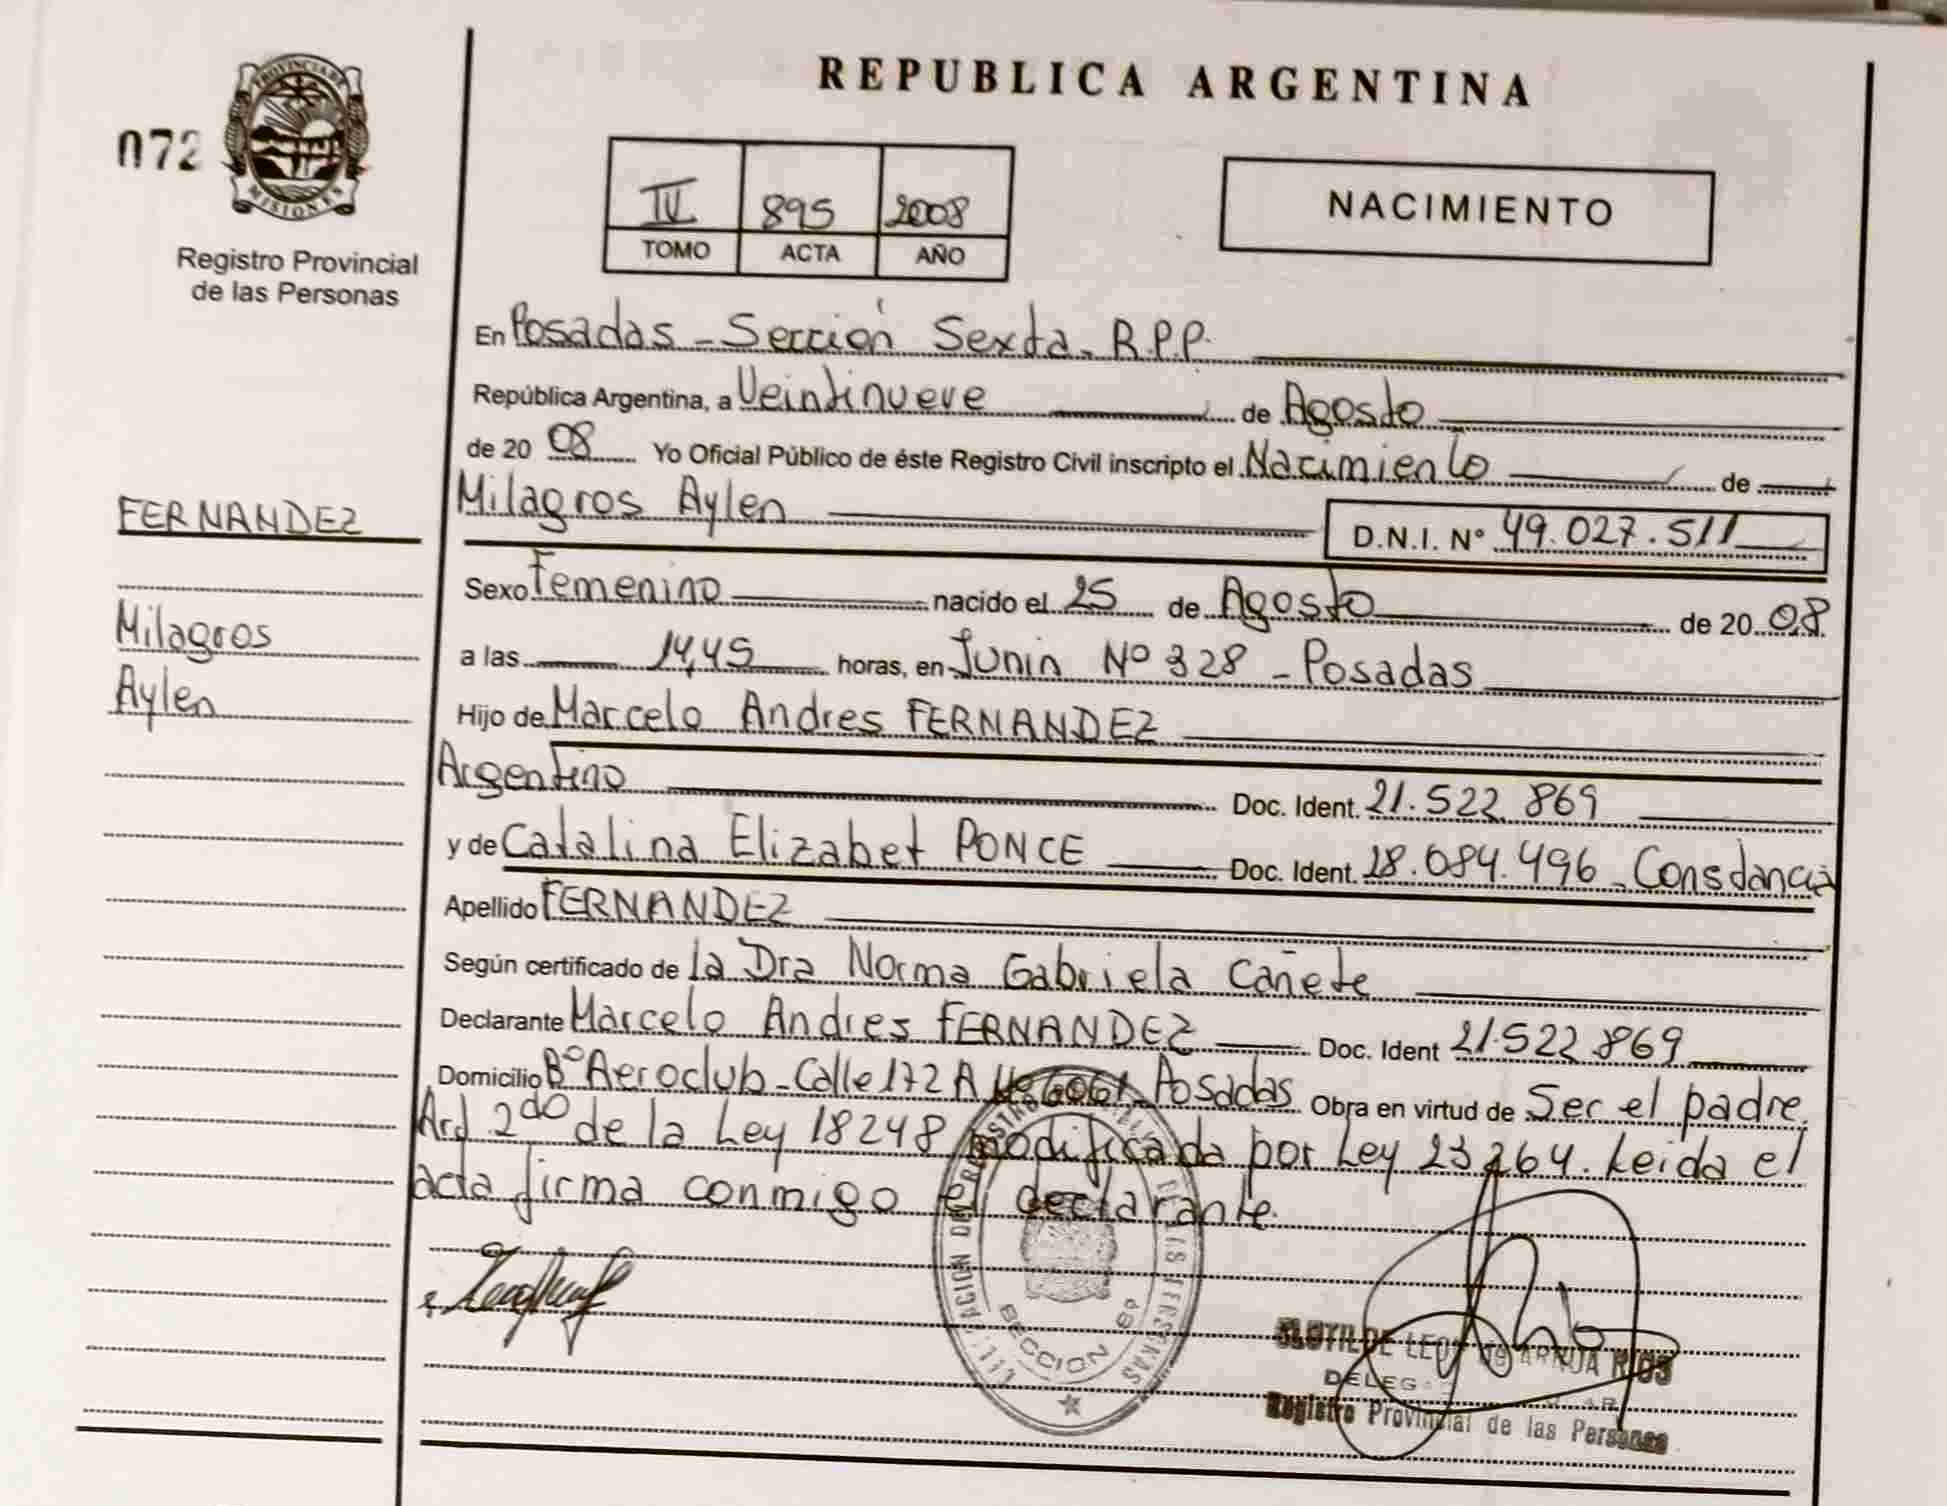 REPUBLICA ARGENTINA
072
PROVINCIA DE
MISIONES
Registro Provincial
de las Personas
IV 895 2008
TOMO ACTA AÑO
NACIMIENTO
En Posadas - Sección Sexta. R.P.P.
República Argentina, a Veintinueve de Agosto
de 20 08 Yo Oficial Público de éste Registro Civil inscripto el Nacimiento de
Milagros Aylen D.N.I. N° 49.027.511
FERNANDEZ
Milagros
Aylen
Sexo Femenino nacido el 25 de Agosto de 20 08
a las 14,45 horas, en Junin Nº 328 - Posadas
Hijo de Marcelo Andres FERNANDEZ
Argentino Doc. Ident. 21.522.869
y de Catalina Elizabet PONCE Doc. Ident. 18.084.496 - Constancia
Apellido FERNANDEZ
Según certificado de la Dra Norma Gabriela Cañete
Declarante Marcelo Andres FERNANDEZ Doc. Ident 21.522.869
Domicilio Bº Aeroclub - Calle 172 A Nº 6061 - Posadas Obra en virtud de Ser el padre.
Art 2do de la Ley 18248 modificada por Ley 23264. Leida el
acta firma conmigo el declarante.
SECCION 6º
CLOTILDE LEON de ARRUA RIOS
Registro Provincial de las Personas